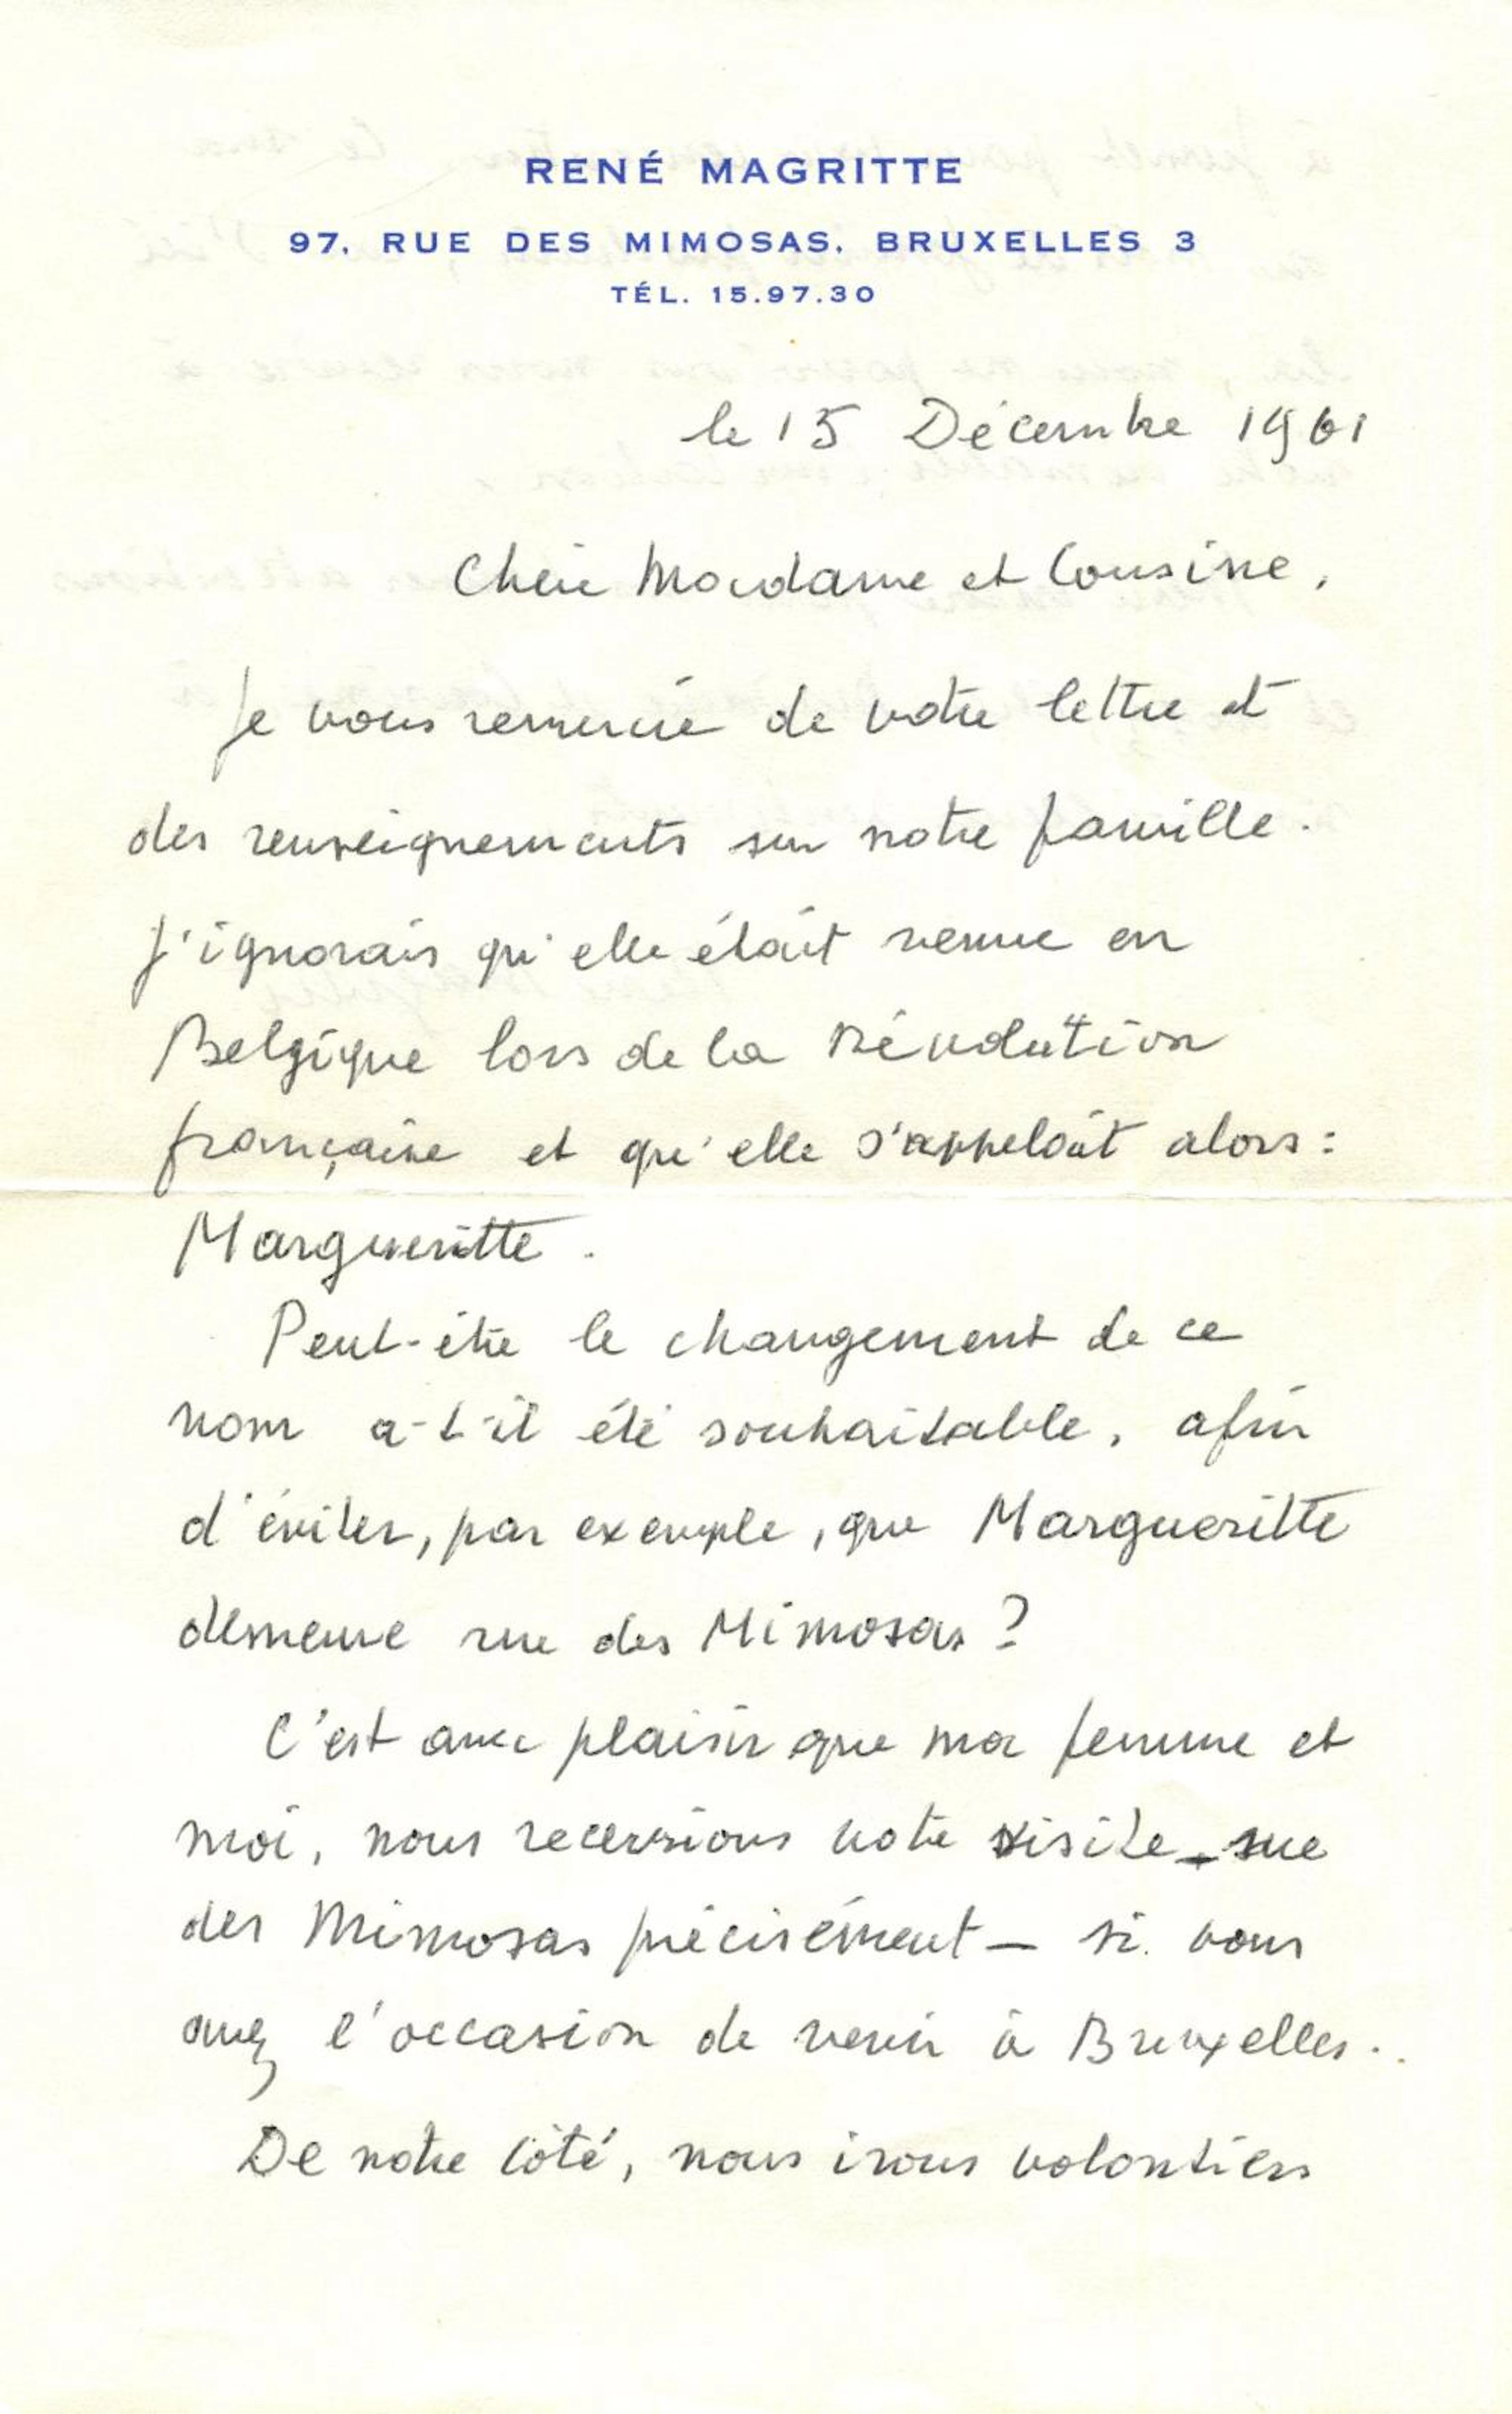 RENÉ MAGRITTE
97, RUE DES MIMOSAS, BRUXELLES 3
TÉL. 15.97.30
le 15 Décembre 1961
Chère Madame et Cousine,
Je vous remercie de votre lettre et
des renseignements sur notre famille.
J'ignorais qu'elle était venue en
Belgique lors de la Révolution
française et qu'elle s'appelait alors :
Margueritte.
Peut-être le changement de ce
nom a-t-il été souhaitable, afin
d'éviter, par exemple, que Margueritte
demeure rue des Mimosas ?
C'est avec plaisir que ma femme et
moi, nous recevrions votre visite – rue
des Mimosas précisément – si vous
avez l'occasion de venir à Bruxelles.
De notre côté, nous irons volontiers